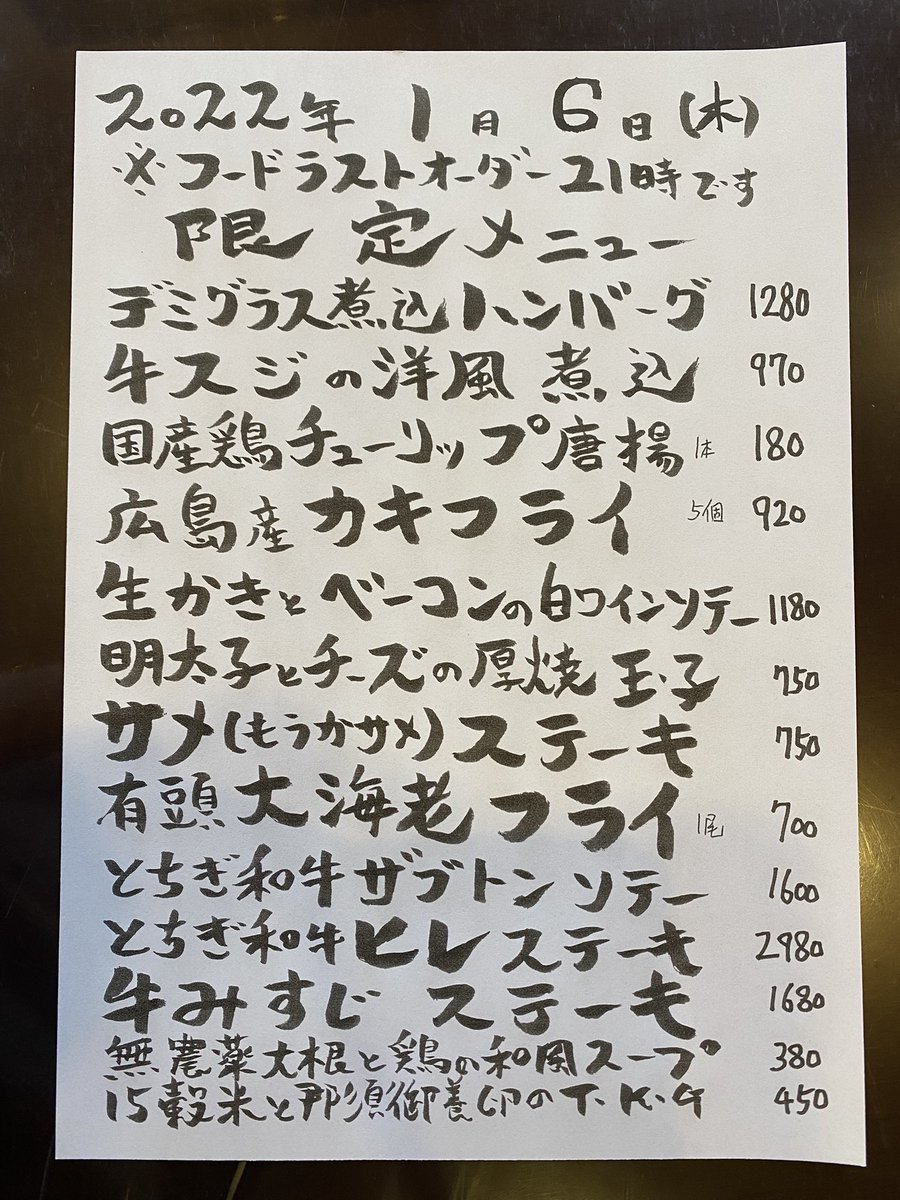 2022年 1月 6日(木)
※フードラストオーダー21時です
限定メニュー
デミグラス煮込ハンバーグ 1280
牛スジの洋風煮込 970
国産鶏チューリップ唐揚 1本 180
広島産カキフライ 5個 920
生かきとベーコンの白ワインソテー 1180
明太子とチーズの厚焼玉子 750
サメ(もうかサメ)ステーキ 750
有頭大海老フライ 1尾 700
とちぎ和牛ザブトンソテー 1600
とちぎ和牛ヒレステーキ 2980
牛みすじステーキ 1680
無農薬大根と鶏の和風スープ 380
15穀米と那須御養卵のT.K.G 450